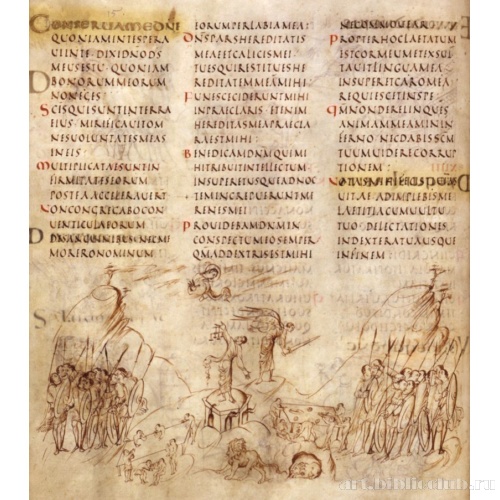 CONSERUAMEDNE
QUONIAMINTESPERA
UIINTE DIXIDNODS
MEUSESTU QUONIAM
BONORUMMEORUM
NONEGES
SCISQUISUNTINTERRA
EIUS MIRIFICAUITOM
NESUOLUNTATESMEAS
INEIS
MULTIPLICATAESUNTIN
FIRMITATESEORUM
POSTEAACCELERAUERT
NONCONGREGABOCON
UENTICULAEORUM
DESANGUINIBUSNECME
MORERONOMINUM
EORUMPERLABIAMEA:
DNSPARSHEREDITATIS
MEAEETCALICISMEI
TUESQUIRESTITUISHE
REDITATEMMEAMIHI
FUNESCECIDERUNTMIHI
INPRAECLARIS ETENIM
HEREDITASMEAPRAECLA
RAESTMIHI:
BENEDICAMDNMQUIMI
HITRIBUITINTELLECTUM
INSUPERETUSQUEADNOC
TEMINCREPUERUNTME
RENESMEI
PROUIDEBAMDNMIN
CONSPECTUMEOSEMPER
QMADEXTRISESTMIHI
NECOMMOUEAR
PROPTERHOCLAETATUM
ESTCORMEUMETEXSUL
TAUITLINGUAMEA
INSUPERETCAROMEA
REQUIESCETINSPE
QMNONDERELINQUIS
ANIMAMMEAMININ
FERNO NECDABISSCM
TUUMUIDERECORRUP
TIONEM:
UITAE ADIMPLEBISME
LAETITIACUMUULTU
TUO DELECTATIONES
INDEXTERATUAUSQUE
INFINEM
art.biblioclub.ru